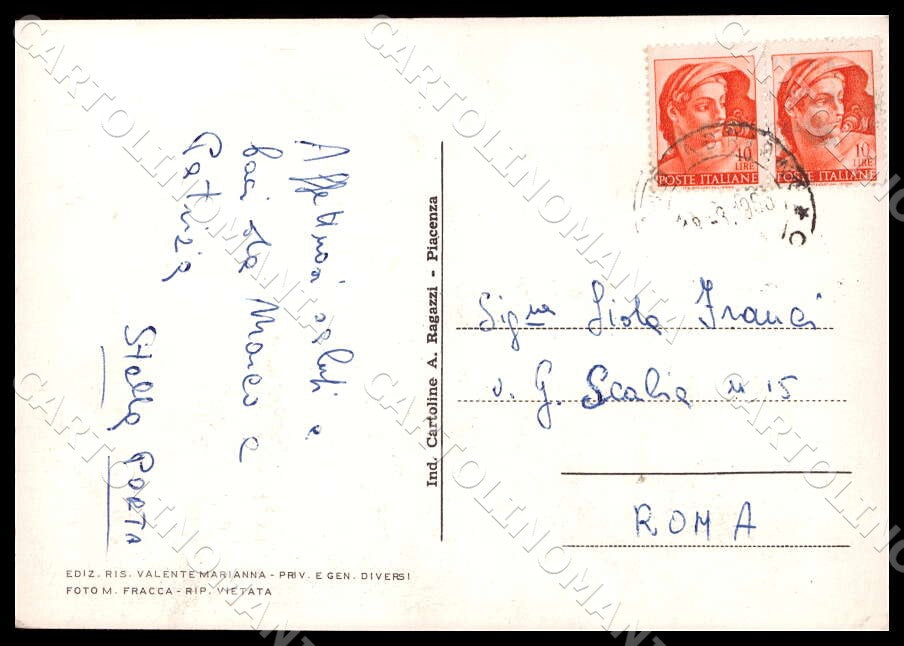 Affettuosi saluti e
baci da Marco e
Patrizia
Stella Porta
Ind. Cartoline A. Ragazzi - Piacenza
10
LIRE
POSTE ITALIANE
10
LIRE
POSTE ITALIANE
Sig.na Liola Franci
v. G. Scalia n 15
ROMA
EDIZ. RIS. VALENTE MARIANNA - PRIV. E GEN. DIVERSI
FOTO M. FRACCA - RIP. VIETATA
CARTOLINOMANIA